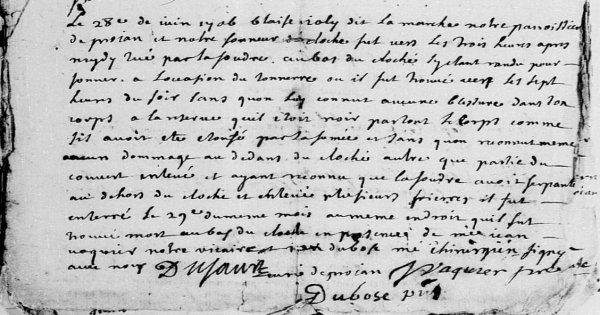 Le 28e de juin 1706 blaise joly dit la marche notre paroissien
de projan et notre sonneur de cloche fut vers les trois heures apres
mydy tué par la foudre au bas du cloché sy etant randu pour
sonner a loccasion du tonnerre ou il fut trouvé vers les sept
heures du soir sans quon luy connut aucune blessure dans son
corps a la reserve quil etoit noir par tout le corps comme
sil avoit eté etoufé par la fumée et sans quon reconnut meme
aucun dommage au dedans du cloché autre que partie du
couvert enlevé et ayant reconnu que la foudre avoit serpanté
au dehors du cloché et enlevé plusieurs pierres il fut
enterré le 29e du meme mois au meme endroit quil fut
trouvé mort au bas du cloché en presence de mre jean
vaquier notre vicaire et dubosc me chirurgien signes
avec nous Dufaur curé de projan Vaquier pre
Dubosc pnt